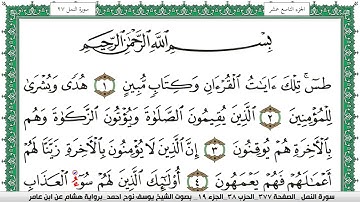 الجزء التاسع عشر
سورة النمل ٢٧
بِسْمِ اللَّهِ الرَّحْمَٰنِ الرَّحِيمِ
طسٓ ۚ تِلْكَ ءَايَٰتُ الْقُرْءَانِ وَكِتَابٍ مُّبِينٍ ١ هُدًى وَبُشْرَىٰ
لِلْمُؤْمِنِينَ ٢ الَّذِينَ يُقِيمُونَ الصَّلَوٰةَ وَيُؤْتُونَ الزَّكَوٰةَ وَهُم
بِالْءَاخِرَةِ هُمْ يُوقِنُونَ ٣ إِنَّ الَّذِينَ لَا يُؤْمِنُونَ بِالْءَاخِرَةِ زَيَّنَّا لَهُمْ
أَعْمَٰلَهُمْ فَهُمْ يَعْمَهُونَ ٤ أُو۟لَٰٓئِكَ الَّذِينَ لَهُمْ سُوٓءُ الْعَذَابِ
سورة النمل الصفحة ٣٧٧ الحزب ٣٨ الجزء ١٩ بصوت الشيخ يوسف نوح احمد برواية هشام عن ابن عامر